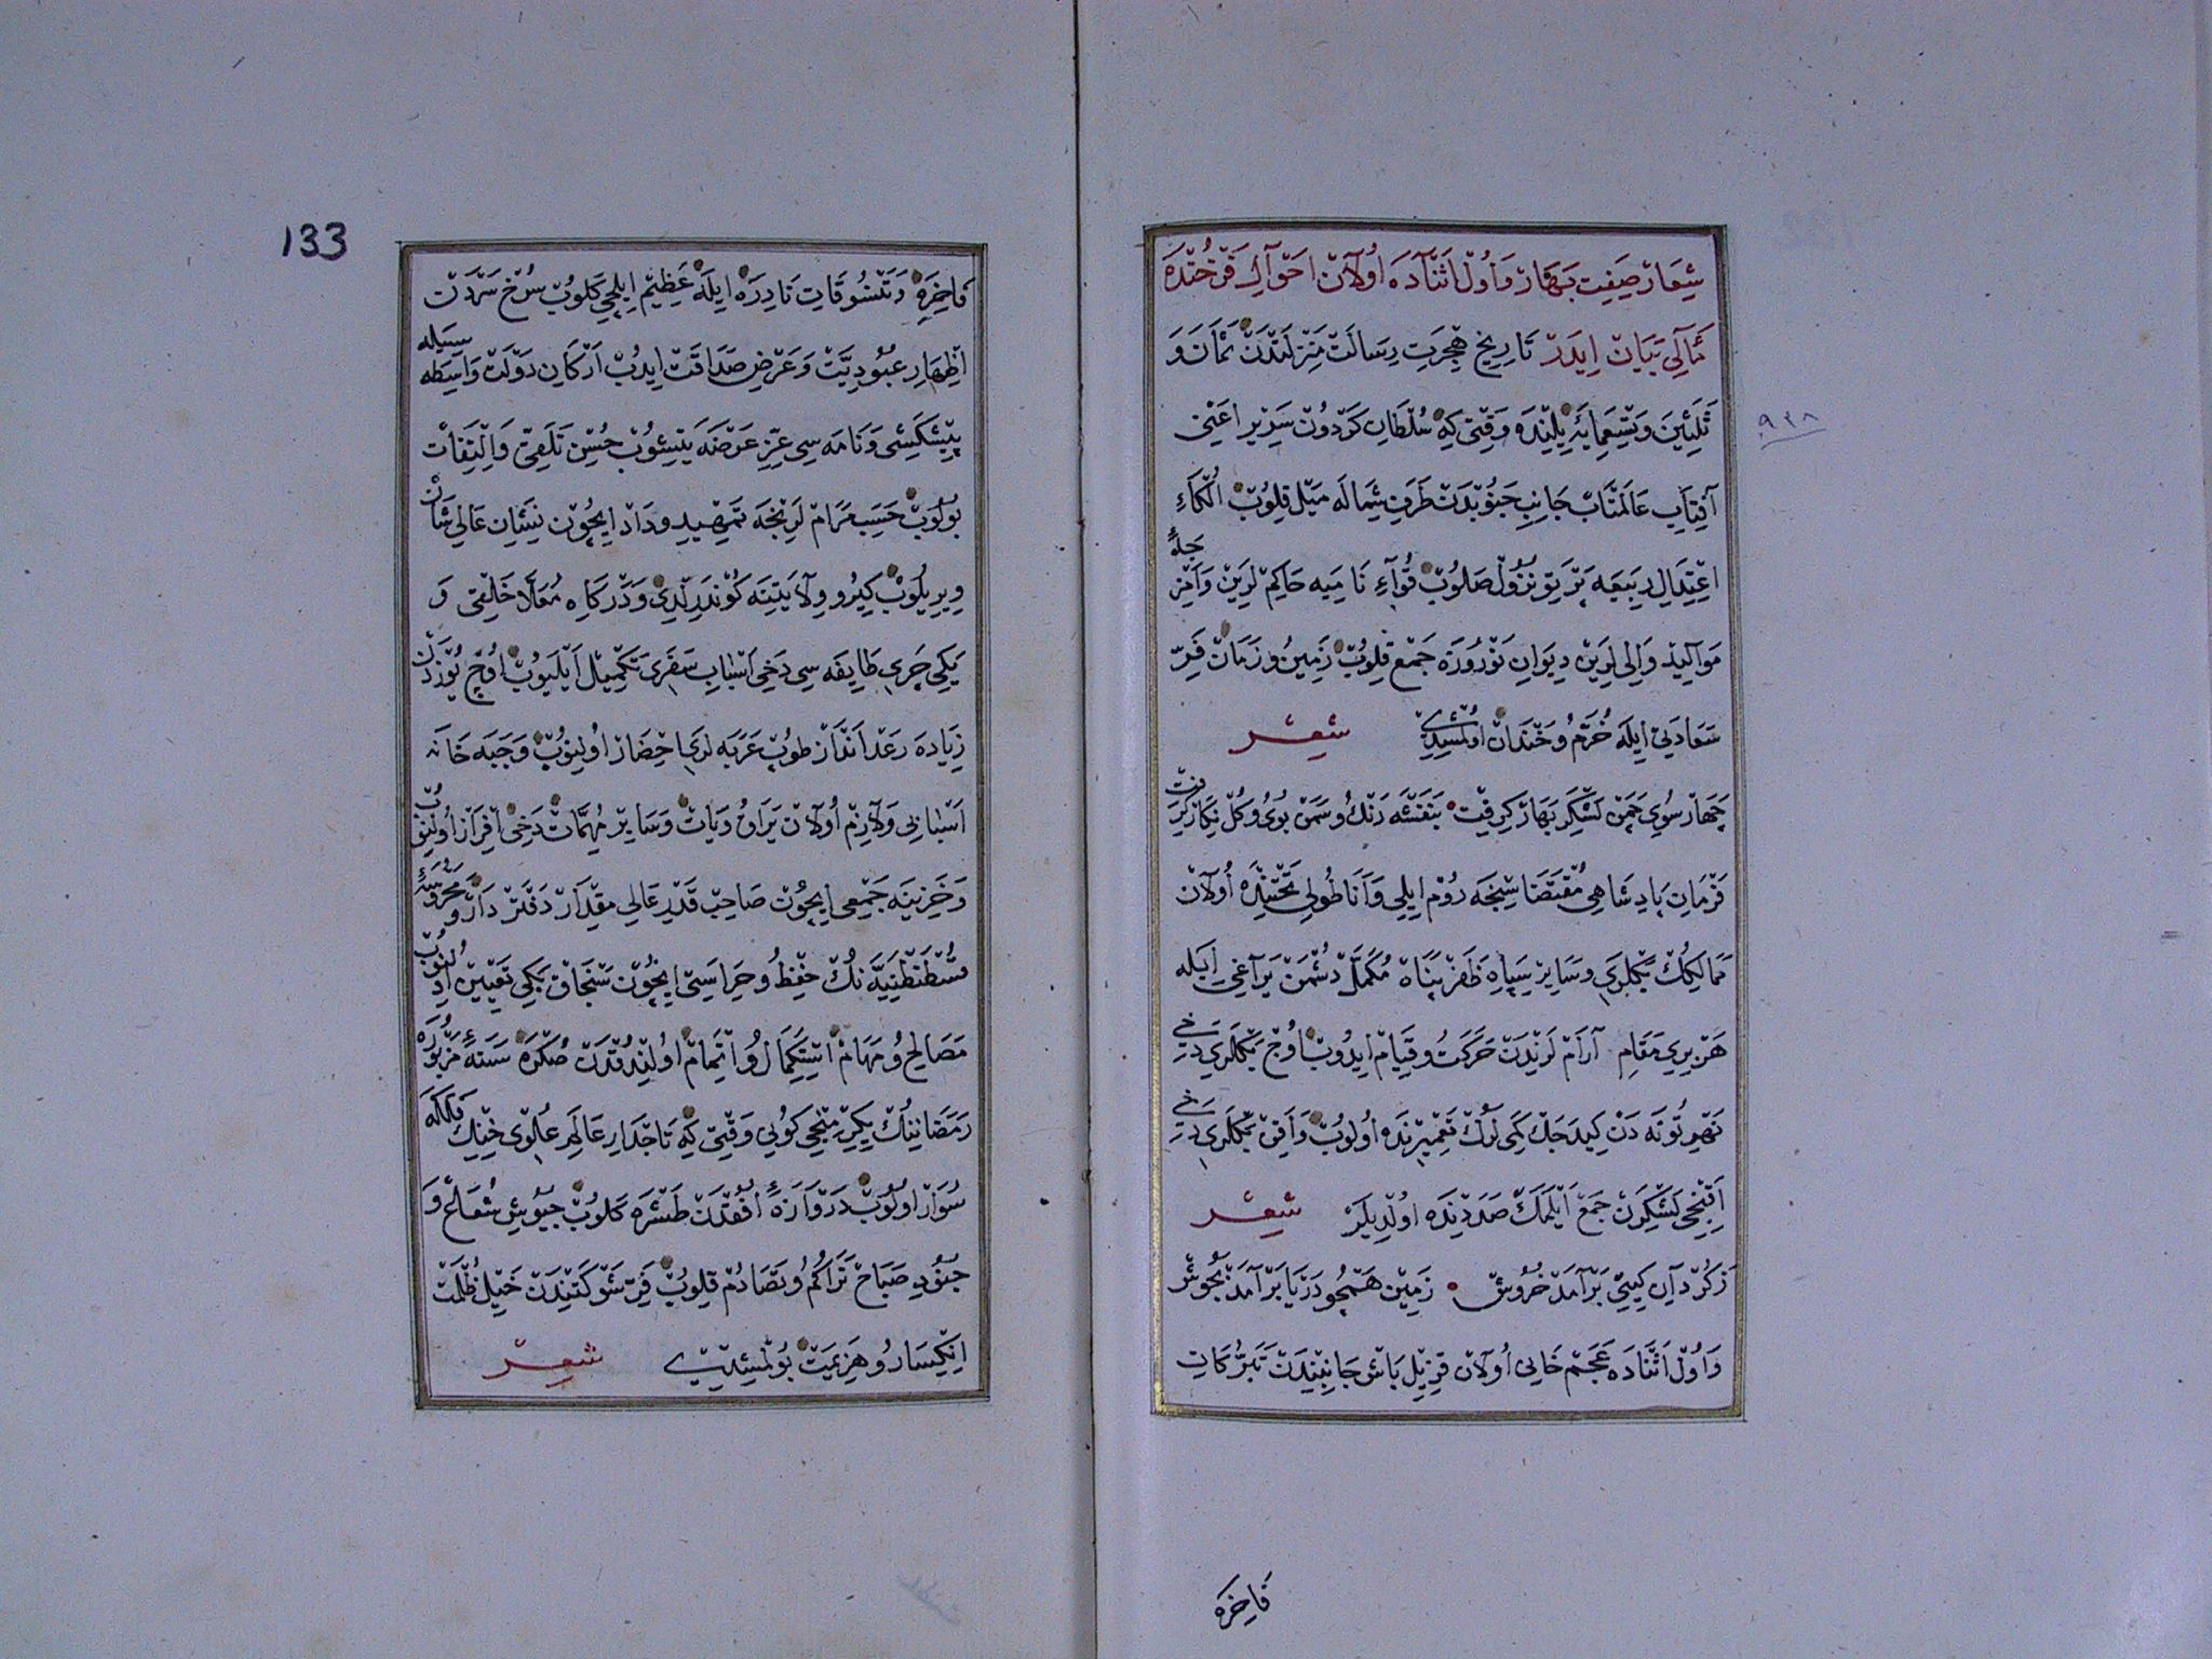 شِعَارْ صِفَتِ بَهَارْ وَاُولْ اَثْنَادَه اُولَانْ اَحْوَالِ فَرْخُنْدَه
مَآلِی بَیَانْ اِیدَرْ تَارِیخِ هِجْرَتِ رِسَالَتْ مَنْزِلَتْدَنْ ثَمَانَ وَ
ثَلٰثِینَ وَتِسْعِمِایَه یِلِنْدَه وَقْتِی کِه سُلْطَانِ کَرْدُونْ سَرِیرْ اَعْنِی
آفِتَابِ عَالَمْتَابْ جَانِبِ جَنُوبْدَنْ طَرَفِ شِمَالَه مَیْل قِلُوبْ
اِعْتِدَالِ رَبِیعَه پَرْتَوِ نُزُولْ صَالُوبْ قُوَّاءِ نَامِیَه حَاکِمْ لَرِینْ وَ
مَوَالِیدْ وَالِی لَرِینْ دِیوَانِ نَوْرُوزَه جَمْع قِلُوبْ زَمِینُ وزَمَانْ فَرِّ
سَعَادَتِی اِیلَه خُرَّمُ وخَنْدَانْ اُولْمُشِیدِی شعر
چَهَارْ سُوِی چَمَنْ لَشْکَرِ بَهَارْ کِرِفْتْ بَنَفْشَه رَنْكُ وسَمَنْ بُوی وکُلْ نِکَارْ کِرِفْتْ
فَرْمَانِ پَادِشَاهِی مُقْتَضَاسِنْجَه رُومْ اِیلِی وَاَنَاطُولِی تَحْتِنْدَه اُولَانْ
مَمَالِكُكْ بَكْلَرِی وسَایِرْ سِپَاهِ ظَفَرْ پَنَاهْ مُکَمَّلْ دُشْمَنْ یَرَاغِی اِیلَه
هَرْ بِرِی مَقَامِ آرَامْ لَرِنْدَنْ حَرَکَتُ وقِیَامْ اِیدُوبْ اُوجْ بَكْلَرِی دَخِی
نَهْرِ تُونَه دَنْ کِیدَجَكْ کَمِی لَرُكْ تَعْمِیرِنْدَه اُولُوبْ وَآقِنْ بَكْلَرِی دَخِی
اَقِنْجِی لَشْکَرِنْ جَمْع اَیْلَمَكْ صَدَدِنْدَه اُولْدِیلَرْ شعر
زَکَرْدَانِ کِیتِی بَرْآمَدْ خُرُوشْ زَمِینْ هَمْچُو دَرْیَا بَرْآمَدْ بَجُوشْ
وَاُولْ اَثْنَادَه عَجَمْ خَانِی اُولَانْ قِزِیلْ بَاشْ جَانِبِنْدَنْ تَبَرُّکَاتِ
فَاخِرَه
٩٣٨
133
فَاخِرَه وَتَنْسُوقَاتِ نَادِرَه اِیلَه عَظِیمْ اِیلْچِی کَلُوبْ سُرْخ سَرْدَنْ
اِظْهَارِ عُبُودِیَّتْ وَعَرْضِ صَدَاقَتْ اِیدُبْ اَرْکَانِ دَوْلَتْ وَاسِطَه سِیلَه
پِیشْکَشِی وَنَامَه سِی عِزِّ عَرْضَه یَتِیشُوبْ حُسْنِ تَلَقِّی وَاِلْتِفَاتْ
بُولُوبْ حَسَبِ مَرَامْ لَرِنْجَه تَمْهِیدِ وِدَادْ اِیچُونْ نِشَانِ عَالِی شَانْ
وِیرِیلُوبْ کِیرُو وِلَایَتِنَه کُونْدَرِلْدِی وَدَرْکَاهِ مُعَلَّا خَلْقِی وَ
یَكِی چَرِی طَایِفَه سِی دَخِی اَسْبَابِ سَفَرِی تَکْمِیلْ اَیْلَیُوبْ اُوچْ یُوزْدَنْ
زِیَادَه رَعْدْ اَنْدَازْ طُوبْ عَرَبَه لَرِی اِحْضَارْ اُولِنُوبْ وَجَبَه خَانَه
اَسْبَابِی وَلَازِمْ اُولَانْ یَرَاقْ وَیَاتْ وَسَایِرْ مُهِمَّاتْ دَخِی اِفْرَازْ اُولِنُوبْ
وَخَزِینَه جَمْعِی اِیچُونْ صَاحِبْ قَدْرِ عَالِی مِقْدَارْ دَفْتَرْ دَارْ وَ
قُسْطَنْطِنِیَّه نُكْ حِفْظُ وحِرَاسَتِی اِیچُونْ سَنْجَاقْ بَكِی تَعْیِینْ اُولِنُوبْ
مَصَالِحُ ومَهَامْ اِسْتِکْمَالُ واِتْمَامْ اُولِنْدُقْدَنْ صُکْرَه سَنَه ءِ مَزْبُورَه
رَمَضَانِنُكْ یِکِرْمِنْجِی کُونِی وَقْتِی کِه تَاجْدَارِ عَالَمِ عُلْوِی خِنْكِ فَلَکَه
سُوَارْ اُولُوبْ دَرْوَازَه ءِ اُفُقْدَنْ طَشْرَه کَلُوبْ جُیُوشِ شُعَاعْ وَ
جُنُودِ صَبَاحْ تَرَاکُمُ وتَصَادُمْ قِلُوبْ فَرِّ شَوْکَتِنْدَنْ خَیْلِ ظُلْمَتْ
اِنْکِسَارُ وهَزِیمَتْ بُولْمُشِیدِی شعر